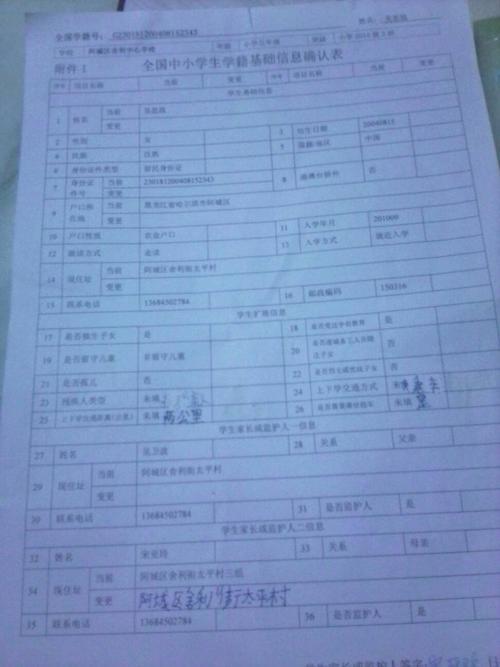 全国学籍号: G230181200408152343 姓名:
学校 阿城区舍利中心学校 年级 小学五年级 班级
附件1 全国中小学生学籍基础信息确认表
序号 项目名称 当前 变更 序号 项目名称 当前 变更
学生基础信息
1 姓名 当前
变更
2 性别 女 3 出生日期 20040815
4 民族 汉族 5 国籍/地区 中国
6 身份证件类型 居民身份证
7 身份证件号 当前 230181200408152343 8 港澳台侨外 否
变更
9 户口所在地 当前 黑龙江省哈尔滨市阿城区
变更
10 户口性质 农业户口 11 入学年月 201009
12 就读方式 走读 13 入学方式 就近入学
14 现住址 当前 阿城区舍利街太平村
变更
15 联系电话 13684502784 16 邮政编码 150316
学生扩展信息
17 是否独生子女 是 18 是否受过学前教育 是
19 是否留守儿童 非留守儿童 20 是否进城务工人员随迁子女 否
21 是否孤儿 否 22 是否烈士或优抚子女 否
23 残疾人类型 未填 24 上下学交通方式 未填
25 上下学交通距离(公里) 未填 两公里 26 是否需要乘坐校车 未填
学生家长或监护人一信息
27 姓名 28 关系 父亲
29 现住址 当前 阿城区舍利街太平村
变更
30 联系电话 13684502784 31 是否监护人 是
学生家长或监护人二信息
32 姓名 33 关系 母亲
34 现住址 当前 阿城区舍利街太平村三组
变更 阿城区舍利街太平村
35 联系电话 13684502784 36 是否监护人 是